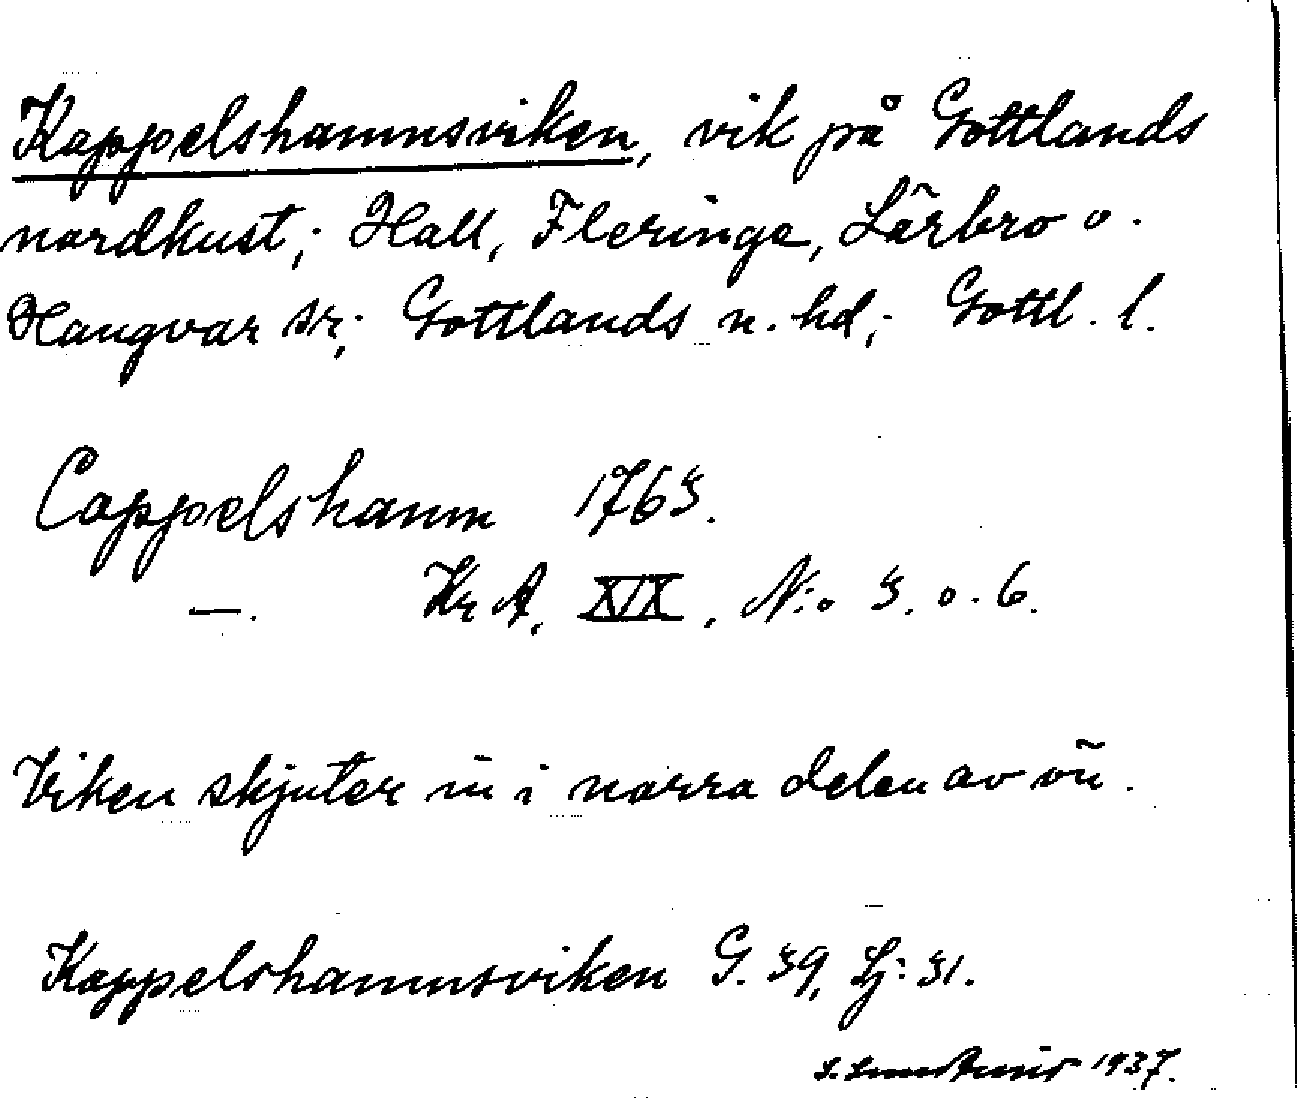 Kappelshamnsviken, vik på Gottlands
nordkust; Hall, Fleringe, Lärbro o.
Hangvar sr; Gottlands n. hd; Gottl. l.
Cappelshamn 1765.
—. Kr A. XIX. N:o 5. o. 6.
Viken skjuter in i norra delen av ön.
Kappelshamnsviken G. 39, Lj: 31.
1937.